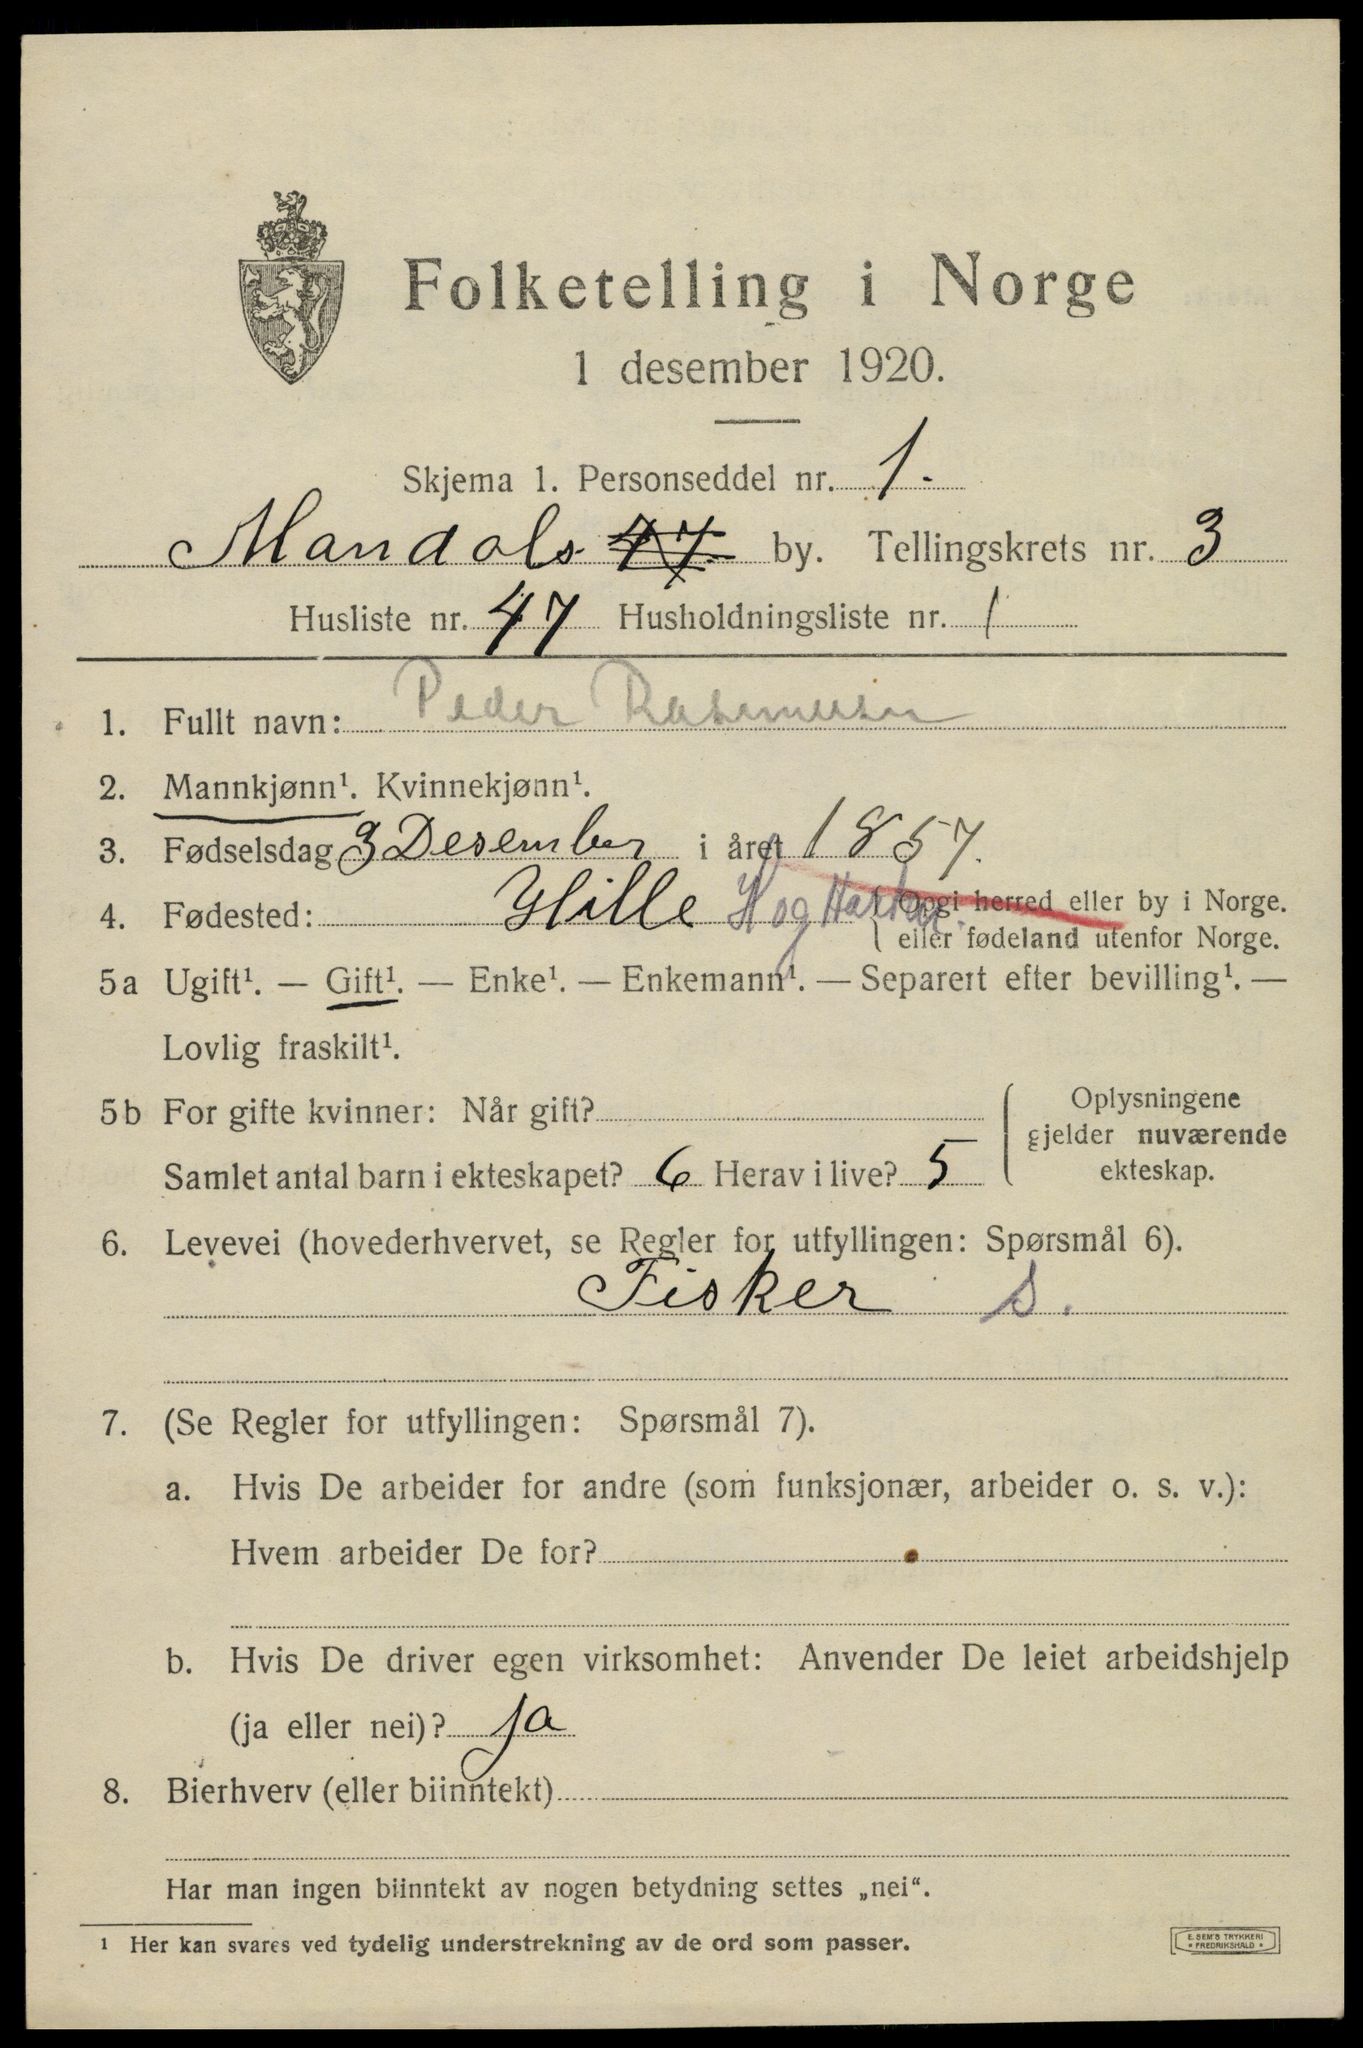 Folketelling i Norge
1 desember 1920.
Skjema 1. Personseddel nr. 1.
Mandals 47 by. Tellingskrets nr. 3
Husliste nr. 47 Husholdningsliste nr. 1
1. Fullt navn: Peder Rasmussen
2. Mannkjønn¹. Kvinnekjønn¹.
3. Fødselsdag 3 Desember i året 1857.
4. Fødested: Hille H og Hartm. { Opgi herred eller by i Norge.
eller fødeland utenfor Norge.
5a Ugift¹. — Gift¹. — Enke¹. — Enkemann¹. — Separert efter bevilling¹. —
Lovlig fraskilt¹.
5b For gifte kvinner: Når gift?
Samlet antal barn i ekteskapet? 6 Herav i live? 5
Oplysningene
gjelder nuværende
ekteskap.
6. Levevei (hovederhvervet, se Regler for utfyllingen: Spørsmål 6).
Fisker S.
7. (Se Regler for utfyllingen: Spørsmål 7).
a. Hvis De arbeider for andre (som funksjonær, arbeider o. s. v.):
Hvem arbeider De for?
b. Hvis De driver egen virksomhet: Anvender De leiet arbeidshjelp
(ja eller nei)? ja
8. Bierhverv (eller biinntekt)
Har man ingen biinntekt av nogen betydning settes „nei“.
¹ Her kan svares ved tydelig understrekning av de ord som passer.
E. SEM'S TRYKKERI
* FREDRIKSHALD *